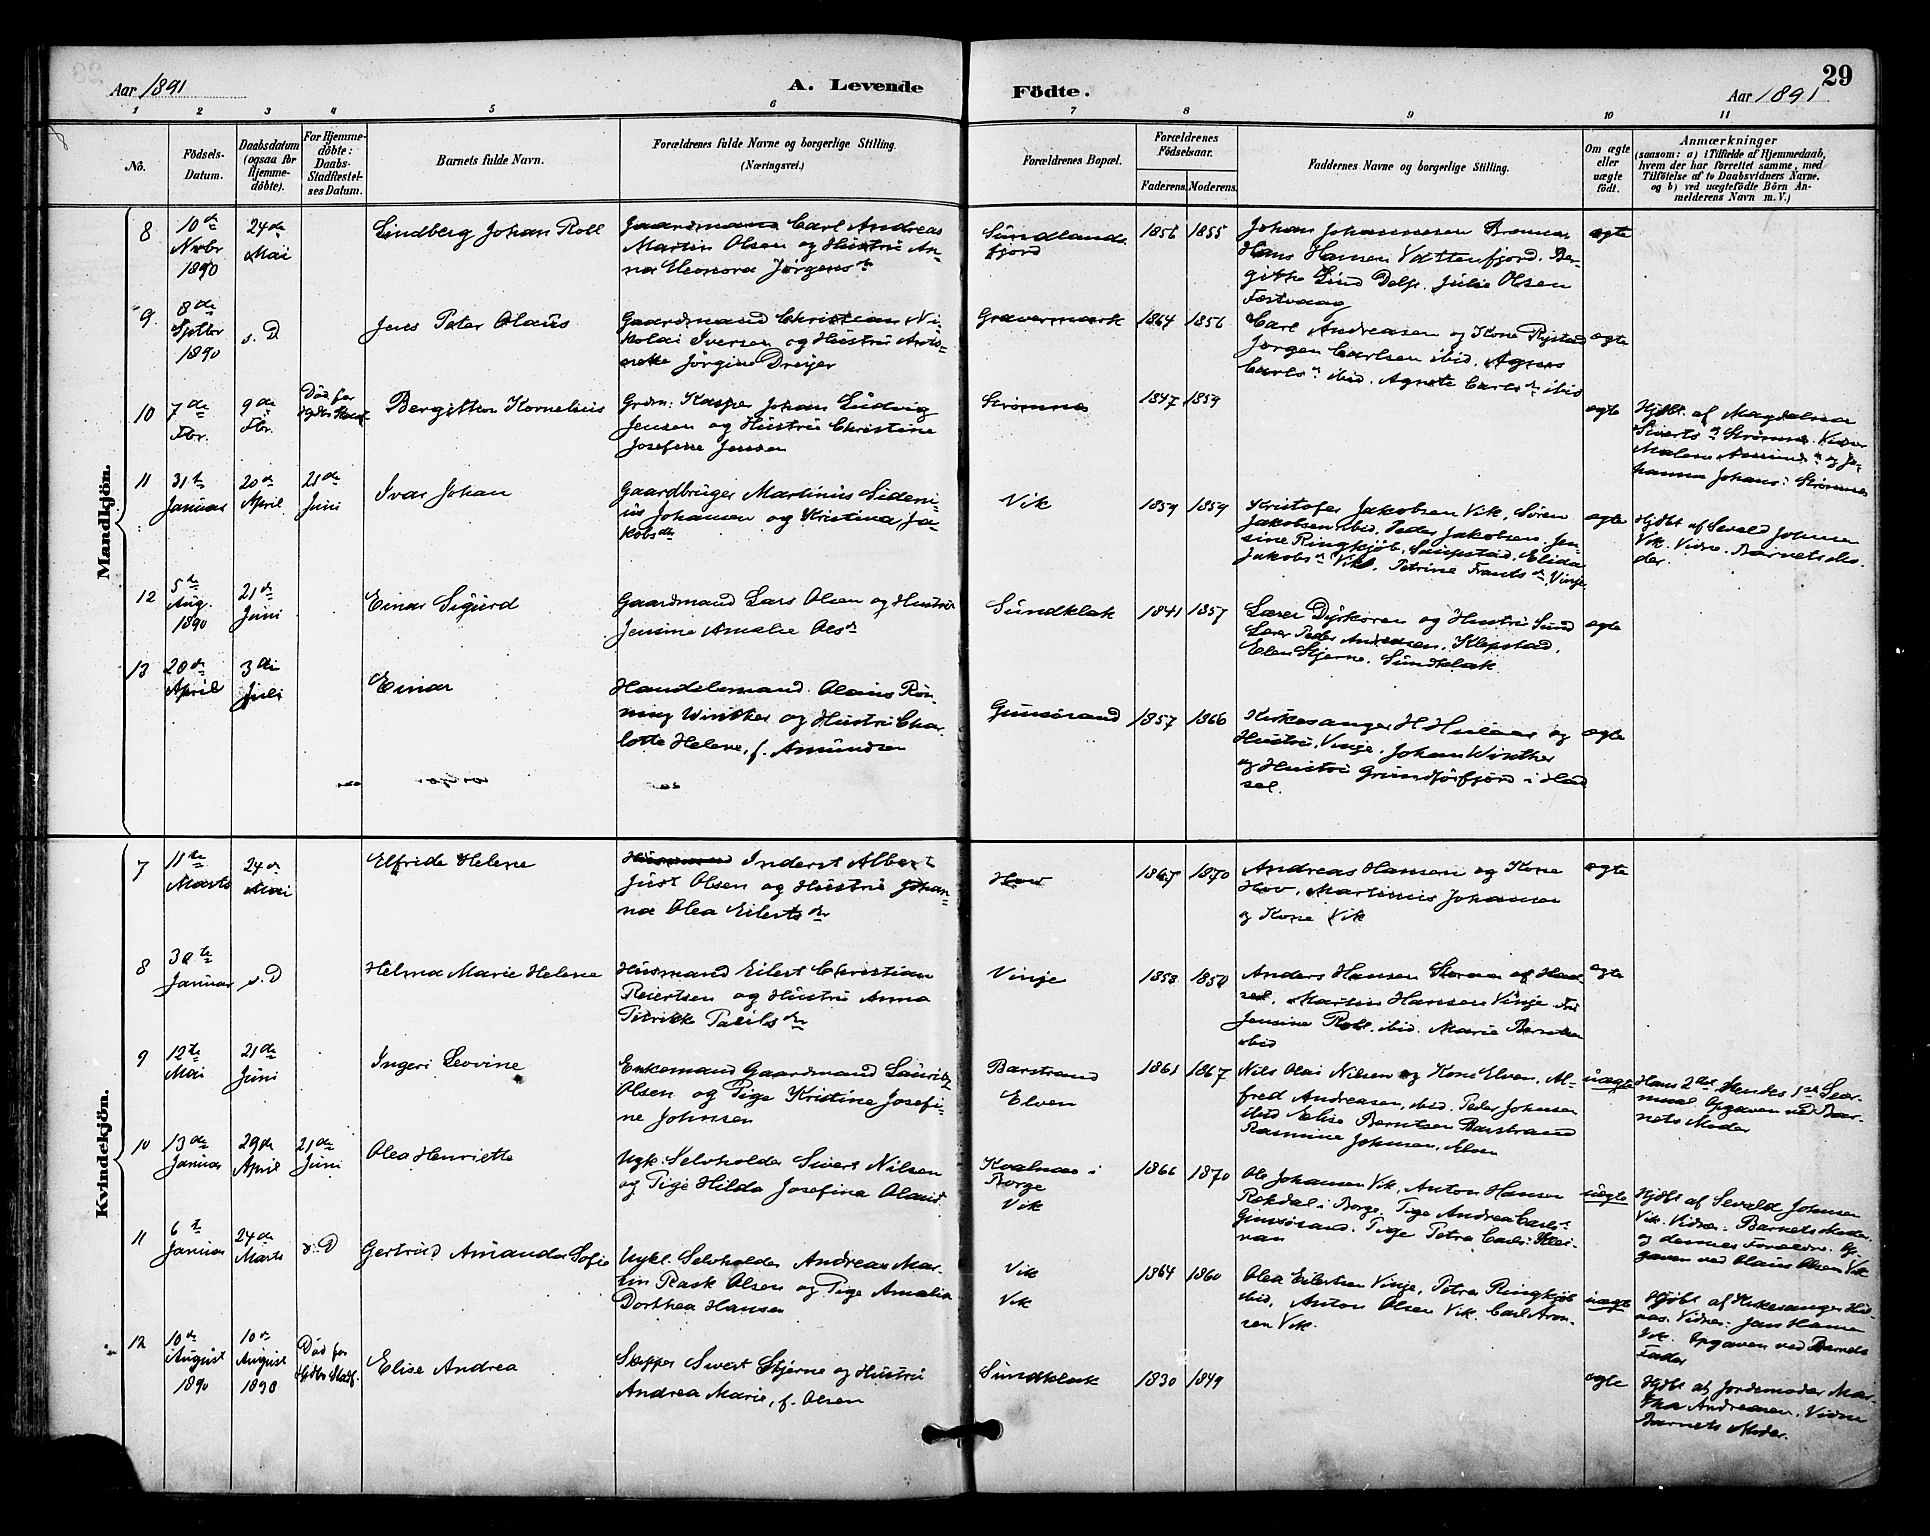 Aar 1891
A. Levende
Födte.
Aar 1891
29
1 2 3 4 5 6 7 8 9 10 11
No.
Födsels-
Datum.
Daabsdatum
(ogsaa for
Hjemme-
döbte).
For Hjemme-
döbte:
Daabs-
Stadfæstel-
ses Datum.
Barnets fulde Navn.
Forældrenes fulde Navne og borgerlige Stilling.
(Næringsvei.)
Forældrenes Bopæl.
Forældrenes
Födselsaar.
Faderens. Moderens.
Faddernes Navne og borgerlige Stilling.
Om ægte
eller
uægte
födt.
Anmærkninger
(saasom: a) i Tilfælde af Hjemmedaab,
hvem der har forrettet samme, med
Tilföielse af to Daabsvidners Navne.
og b) ved uægtefödte Börn An-
melderens Navn m. V.)
Mandkjön.
8
10de
Novbr
1890
24de
Mai
Lindberg Johan Roll
Gaardmand Carl Andreas
Martin Olsen og Hustru An-
na Eleonora Jørgensdr
Sundlands-
fjord
1856 1855
Johan Johannesen Brenna
Hans Hansen Vattenfjord. Ber-
gitte Lind Delp. Julie Olsen
Festvaag
ægte
9.
8de
Septbr
1890
s. D
Jens Peter Olaus
Gaardmand Christian Ni-
kolai Iversen og Hustru
Jørgine Dreyer
Gravermark
1864 1856
Carl Andreasen og Kone Rystad
Jørgen Carlsen ibid. Agnes
Carlsdr ibid. Agnete Carlsdr ibid
ægte
10
7de
Fbr.
9de
Fbr.
Død før
Bergitton Kornelius
Grdm: Kasper Johan Ludvig
Jensen og Hustru Christine
Josefine Jensen
Strømnes
1847 1859
ægte
Hjdbt. af Magdalena
Siverts dr Strømnes. Vidner
Malene og Jo-
hanna Johans: Strømnes
11
31te
Januar
20de
April
21de
Juni
Ivar Johan
Gaardbruger Martinus Sideni-
us Johansen og Kristina Ja-
kobsdr
Vik
1859 1859
Kristofer Jakobsen Vik, Søren
Jakobsen ibid. Peder Jakobsen. Jen-
sine Ringkjøb, Saupstad. Elida
Jakobsdr Vik. Petrine Frantsdr Vinje
ægte
Hjdbt af Sevald Johnsen
Vik. Vidne. Barnets Mo-
der.
12
5te
Aug.
1890
21de
Juni
Einar Sigurd
Gaardmand Lars Olsen og Hustru
Jensine Amalie Olsdr
Sundklak
1841 1857
Lærer Dyrkoren og Hustru Sund
Lærer Peder Andersen, Klepstad,
Elen Stjerne. Sundklak
ægte
13
20de
April
3die
Juli
Einar
Handelsmand Olaus Røn-
ning Winther og Hustru Char-
lotte Helene, f. Amundsen
Gimsøsand
1857 1866
Kirkesanger H Hulaas og
Hustru, Vinje, Johan Winther
og Hustru Grundførfjord i Had-
sel.
ægte
Kvindekjön.
7
11te
Marts
24de
Mai
Elfride Helene
Inderst Albert
Just Olsen og Hustru Johan-
na Olea Eilertsdr
Hov
1867 1870
Andreas Hansen og Kone
Hov, Martinus Johansen
og Kone Vik
ægte
8
30te
Januar
s. D
Helma Marie Helene
Husmand Eilert Christian
Reiertsen og Hustru Anna
Petrikke Paulsdr
Vinje
1858 1850
Anders Hansen Storm af Had-
sel, Martin Hansen Vinje
Jensine Roll ibid. Marie Berntsen
ibid
ægte
9
12te
Mai
21de
Juni
Ingeri Lovine
Enkemand Gaardmand Lauritz
Olsen og Pige Kristine Josefi-
ne Johnsen
Barstrand
Elven
1861 1867
Nils Olai Nilsen og Kone Elven, Al-
fred Andreasen, ibid. Peder Johnsen
ibid Elise Berntsen Barstrand
Rasmine Johnsen, Elven
uægte
Hans 2det Hendes 1ste Leier-
maal Opgaven ved Bar-
nets Moder
10
13de
Januar
29de
April
21de
Juni
Olea Henriette
Ugk. Selvholder Sivert Nilsen
og Pige Hilda Josefina Olausd
Kvalnes i
Borge
Vik
1866 1870
Ole Johansen Vik, Anton Hansen
Rekdal i Borge. Pige Andrea Carls-
Gimsøsand. Pige Petra Carls: Klei-
van
uægte
Hjdbt af Sevald Johnsen
Vik. Vidner. Barnets Moder
og dennes Forældre. Op-
gaven ved Olaus Olsen Vik
11
6te
Januar
24de
Marts
s. D
Gertrud Amanda Sofie
Ugkl. Selvholder Andreas Mar-
tin Rask Olsen og Pige Amalia
Dorthea Hansen
Vik
Vik
1864 1860
Olea Eilertsen Vinje, Petra Ringkjøb
ibid, Anton Olsen Vik. Carl Aron-
sen Vik.
uægte
Hjdbt af Kirkesanger Hul-
aas. Vidner: Jens Hansen
Vik. Opgaven ved Barnets
Fader
12
10de
August
1890
10de
August
1890
Død før
Elise Andrea
Skipper Sivert Stjerne og Hustru
Andrea Marie, f. Olsen
Sundklak
1830 1849
ægte
Hjdbt af Jordemoder Mar-
tha Andreasen. Vidne
Barnets Moder.